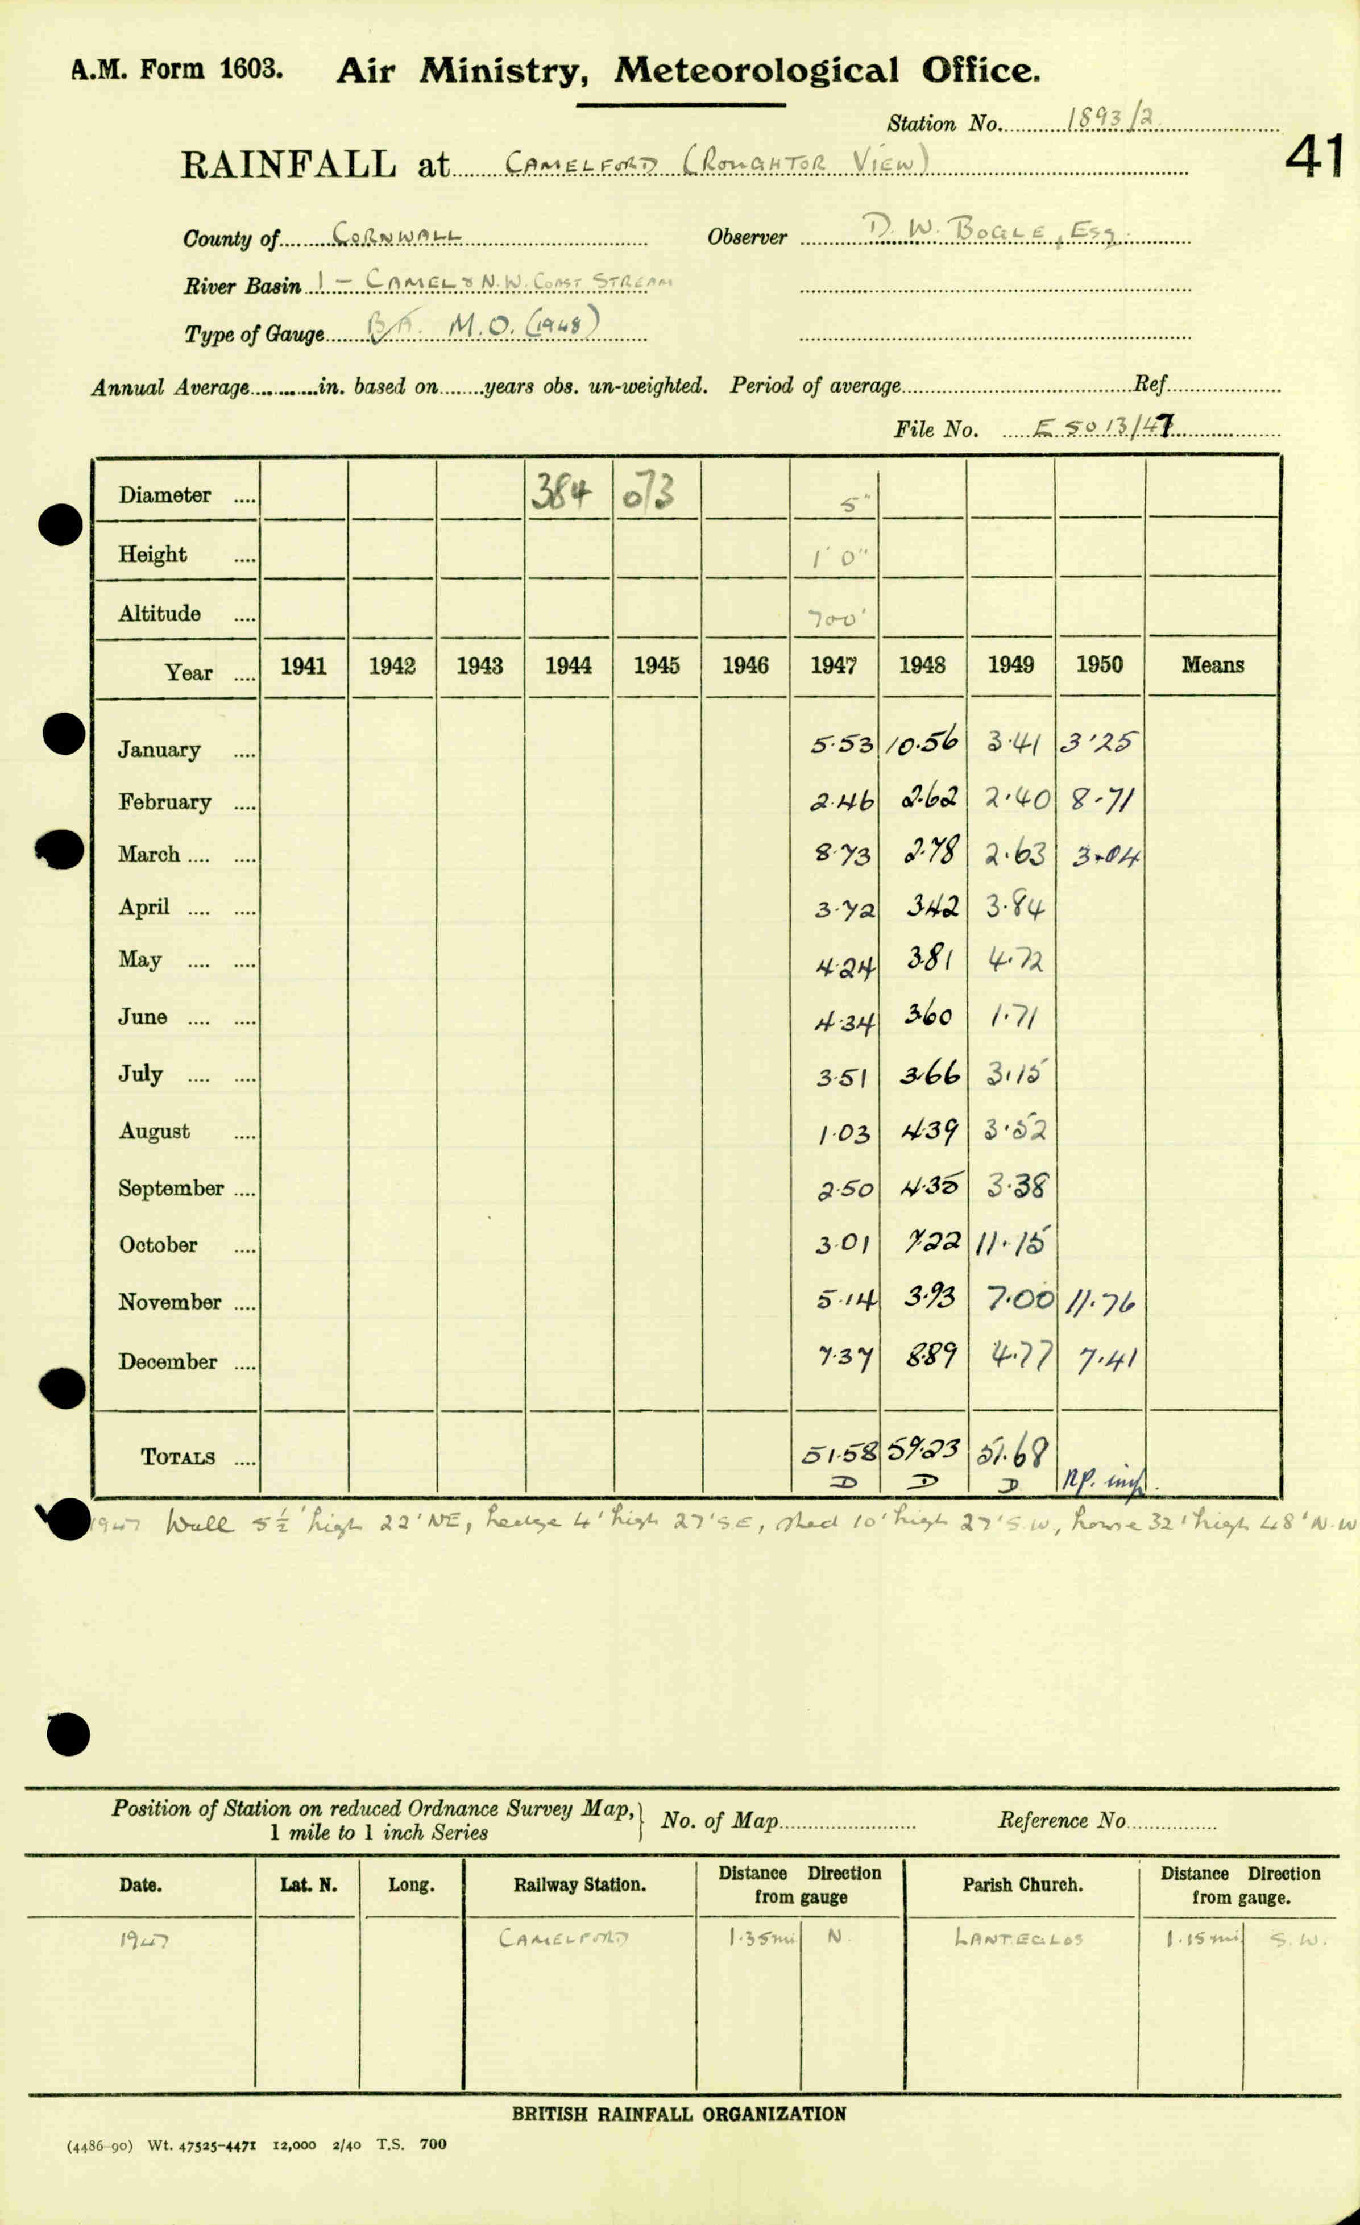 A.M. Form 1603. Air Ministry, Meteorological Office.
Station No. 1893/2
41
RAINFALL at CAMELFORD (ROUGHTOR VIEW)
County of CORNWALL Observer D. W. BOGLE, ESQ.
River Basin 1 - CAMEL & N.W. COAST STREAM
Type of Gauge B.A. M.O. (1948)
Annual Average in. based on years obs. un-weighted. Period of average Ref
File No. E 5013/47
Diameter 384 073 5"
Height 1' 0"
Altitude 700'
Year 1941 1942 1943 1944 1945 1946 1947 1948 1949 1950 Means
January 5.53 10.56 3.41 3.25
February 2.46 2.62 2.40 8.71
March 8.73 2.78 2.63 3.04
April 3.72 3.42 3.84
May 4.24 3.81 4.72
June 4.34 3.60 1.71
July 3.51 3.66 3.15
August 1.03 4.39 3.52
September 2.50 4.35 3.38
October 3.01 7.22 11.15
November 5.14 3.93 7.00 11.76
December 7.37 8.89 4.77 7.41
TOTALS 51.58 59.23 51.68
D D D
1947 Wall 5½' high 22' NE, hedge 4' high 27' S.E, shed 10' high 27' S.W, house 32' high 48' N.W
Position of Station on reduced Ordnance Survey Map, } No. of Map Reference No.
1 mile to 1 inch Series
Date. Lat. N. Long. Railway Station. Distance Direction from gauge Parish Church. Distance Direction from gauge.
1947 CAMELFORD 1.35mi N. LANTEGLOS 1.15mi S.W.
BRITISH RAINFALL ORGANIZATION
(4486-90) Wt. 47525-4471 12,000 2/40 T.S. 700